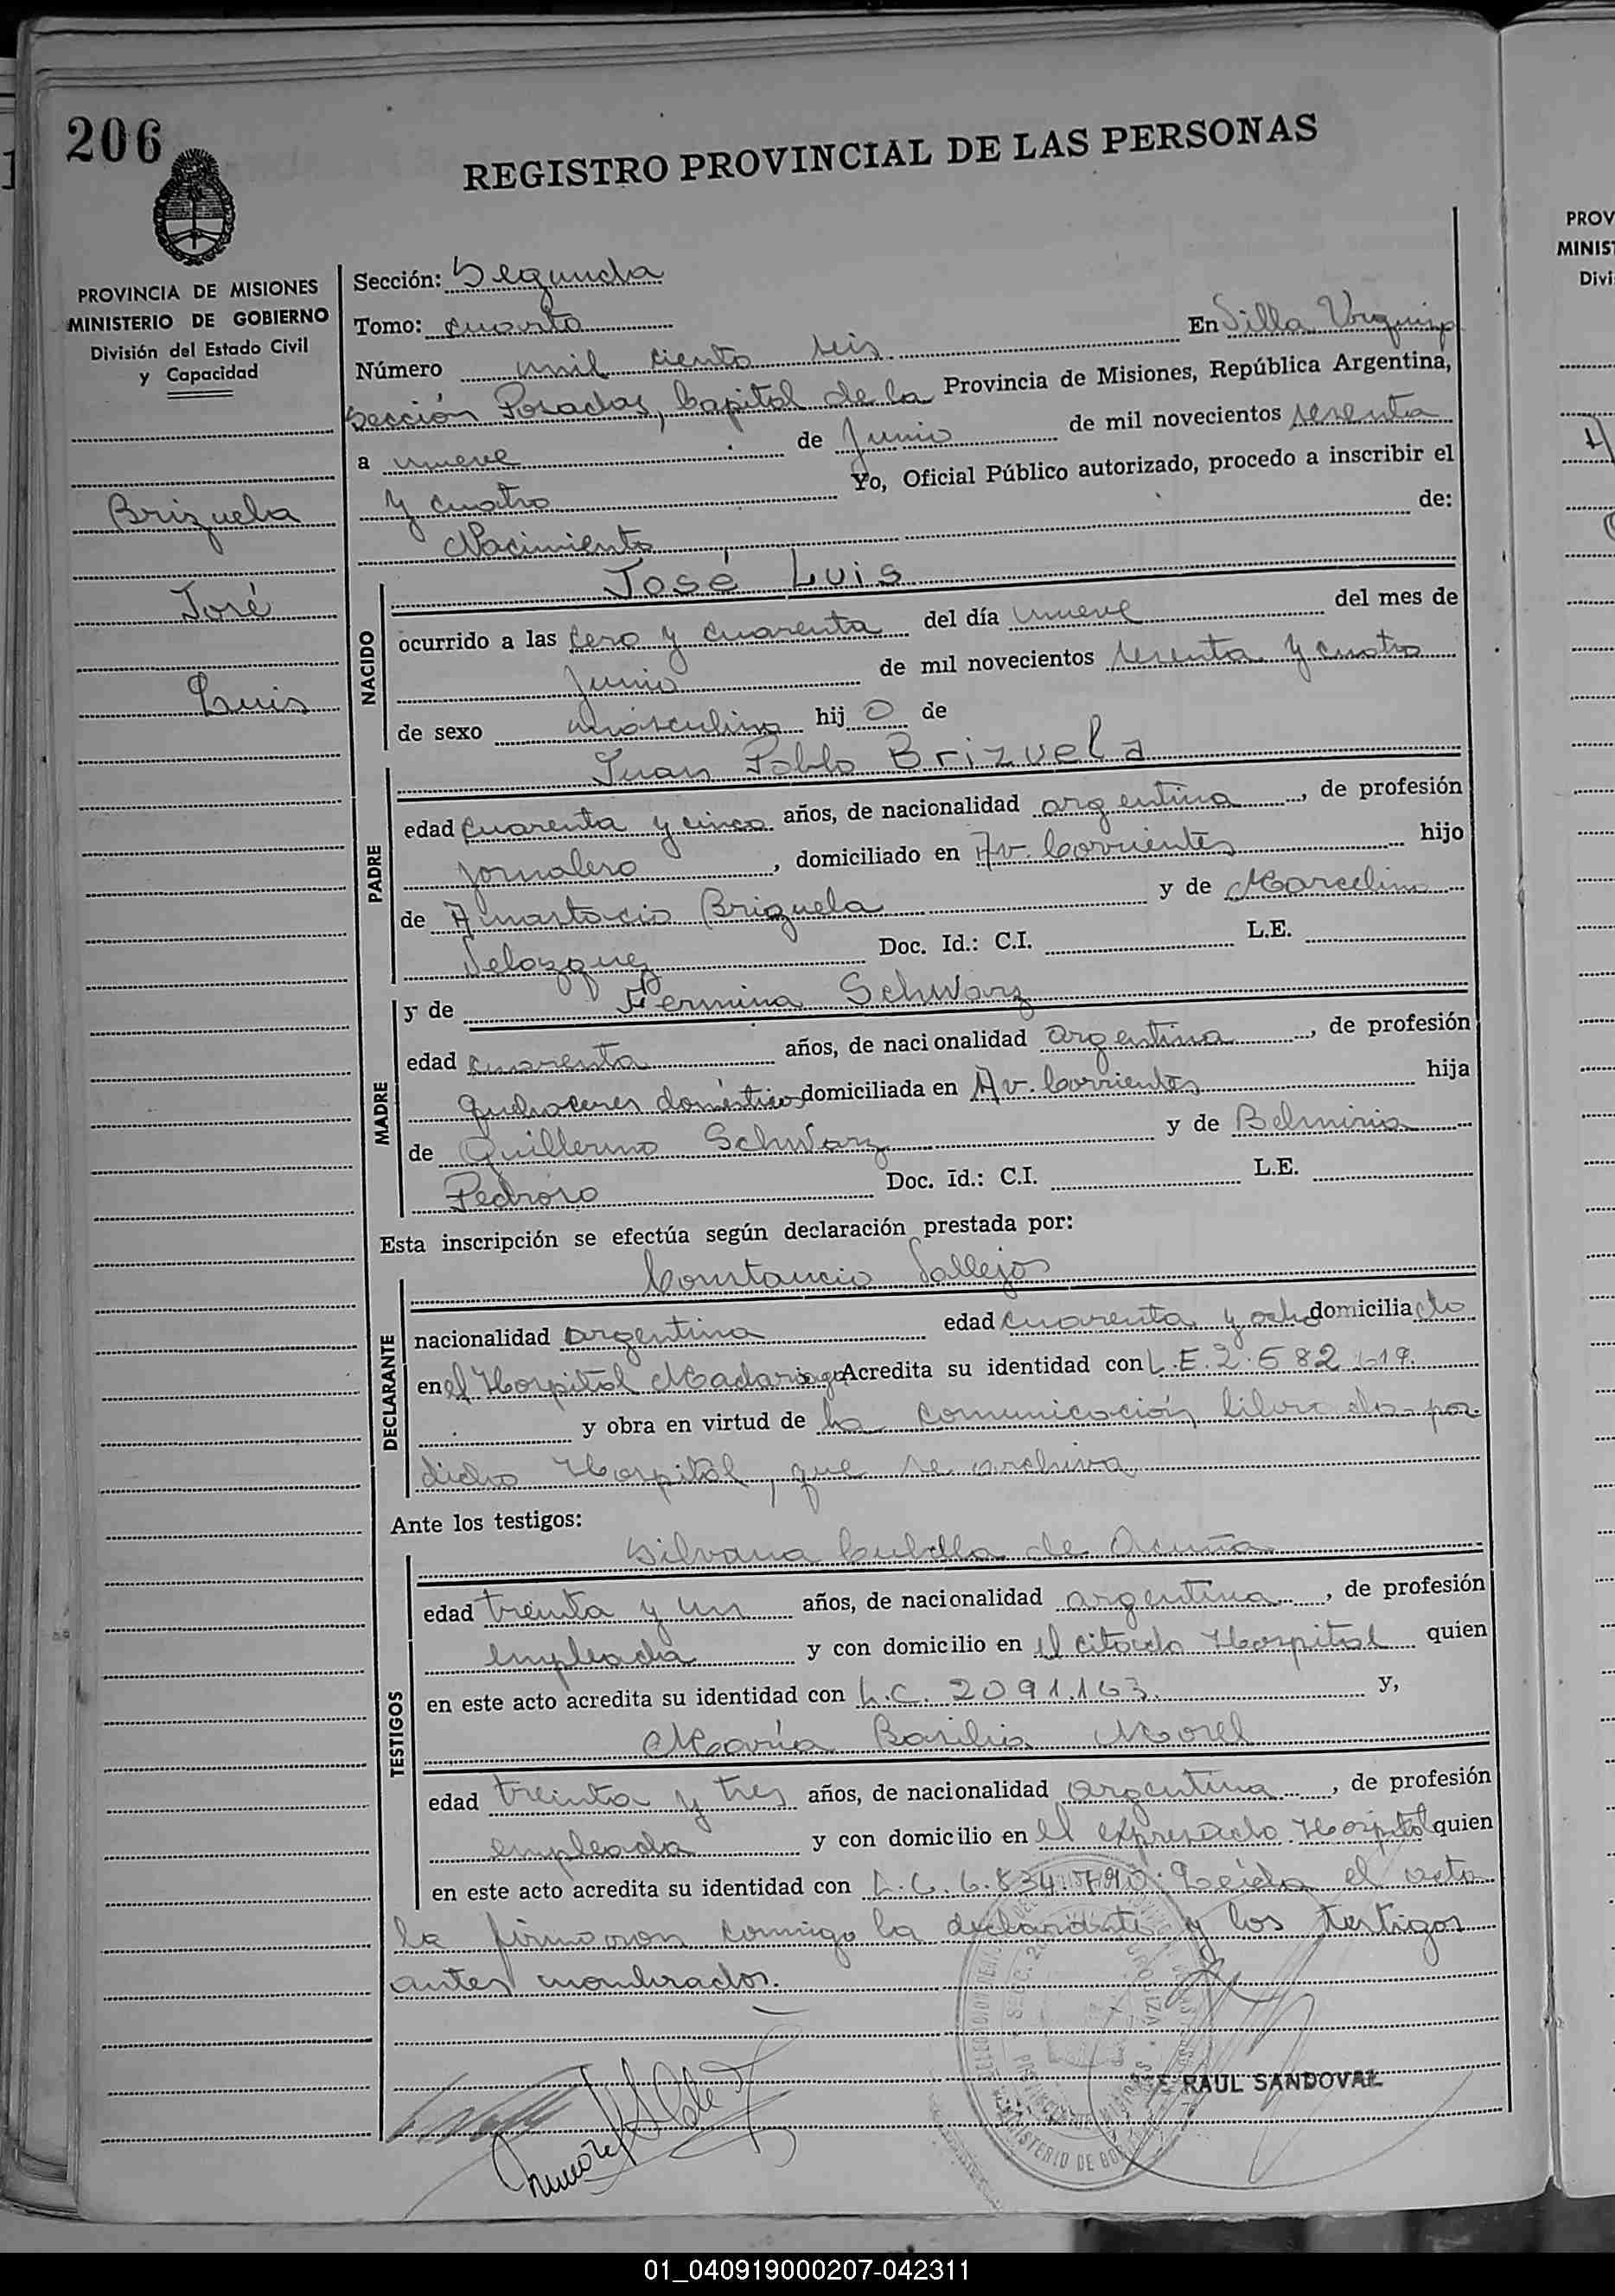 206
REGISTRO PROVINCIAL DE LAS PERSONAS
PROVINCIA DE MISIONES
MINISTERIO DE GOBIERNO
División del Estado Civil
y Capacidad
Brizuela
José
Luis
Sección: Segunda
Tomo: cuarto
Número mil ciento seis En Villa Urquiza
Sección Posadas, Capital de la Provincia de Misiones, República Argentina,
a nueve de Junio de mil novecientos sesenta
y cuatro Yo, Oficial Público autorizado, procedo a inscribir el
Nacimiento de:
NACIDO
José Luis
ocurrido a las cero y cuarenta del día nueve del mes de
junio de mil novecientos sesenta y cuatro
de sexo masculino hijo de
PADRE
Juan Pablo Brizuela
edad cuarenta y cinco años, de nacionalidad argentina, de profesión
jornalero, domiciliado en Av. Corrientes hijo
de Anastacio Brizuela y de Marcelina
Velazquez Doc. Id.: C.I. L.E.
MADRE
y de Fermina Schwarz
edad cuarenta años, de nacionalidad argentina, de profesión
quehaceres domésticos domiciliada en Av. Corrientes hija
de Guillermo Schwarz y de Belmiria
Pedrozo Doc. Id.: C.I. L.E.
Esta inscripción se efectúa según declaración prestada por:
DECLARANTE
Constancio Vallejos
nacionalidad argentina edad cuarenta y ocho domiciliado
en el Hospital Madariaga Acredita su identidad con L.E. 2.582
y obra en virtud de la comunicación librada por
dicho Hospital, que se archiva
Ante los testigos:
TESTIGOS
Silvana Cubilla de Acuña
edad treinta y un años, de nacionalidad argentina, de profesión
empleada y con domicilio en el citado Hospital quien
en este acto acredita su identidad con L.C. 2091.163. y,
María Basilia Morel
edad treinta y tres años, de nacionalidad argentina, de profesión
empleada y con domicilio en el expresado Hospital quien
en este acto acredita su identidad con L.C. 6.834.790. Leída el acta
la firmaron conmigo la declarante y los testigos
antes nombrados.
RAUL SANDOVAL
MINISTERIO DE GO
PROV
MINIS
Divi
01_040919000207-042311